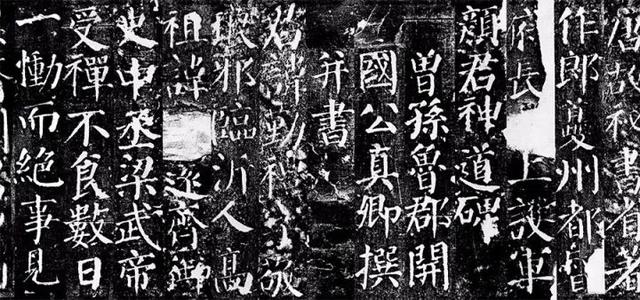 唐故秘書省著
作郎夔州都督
府長上護軍
顏君神道碑
曾孫魯郡開
國公真卿撰
并書
君諱勤禮敬
琅邪臨沂人高
祖諱遠齊御
史中丞梁武帝
受禪不食數日
一慟而絕事見